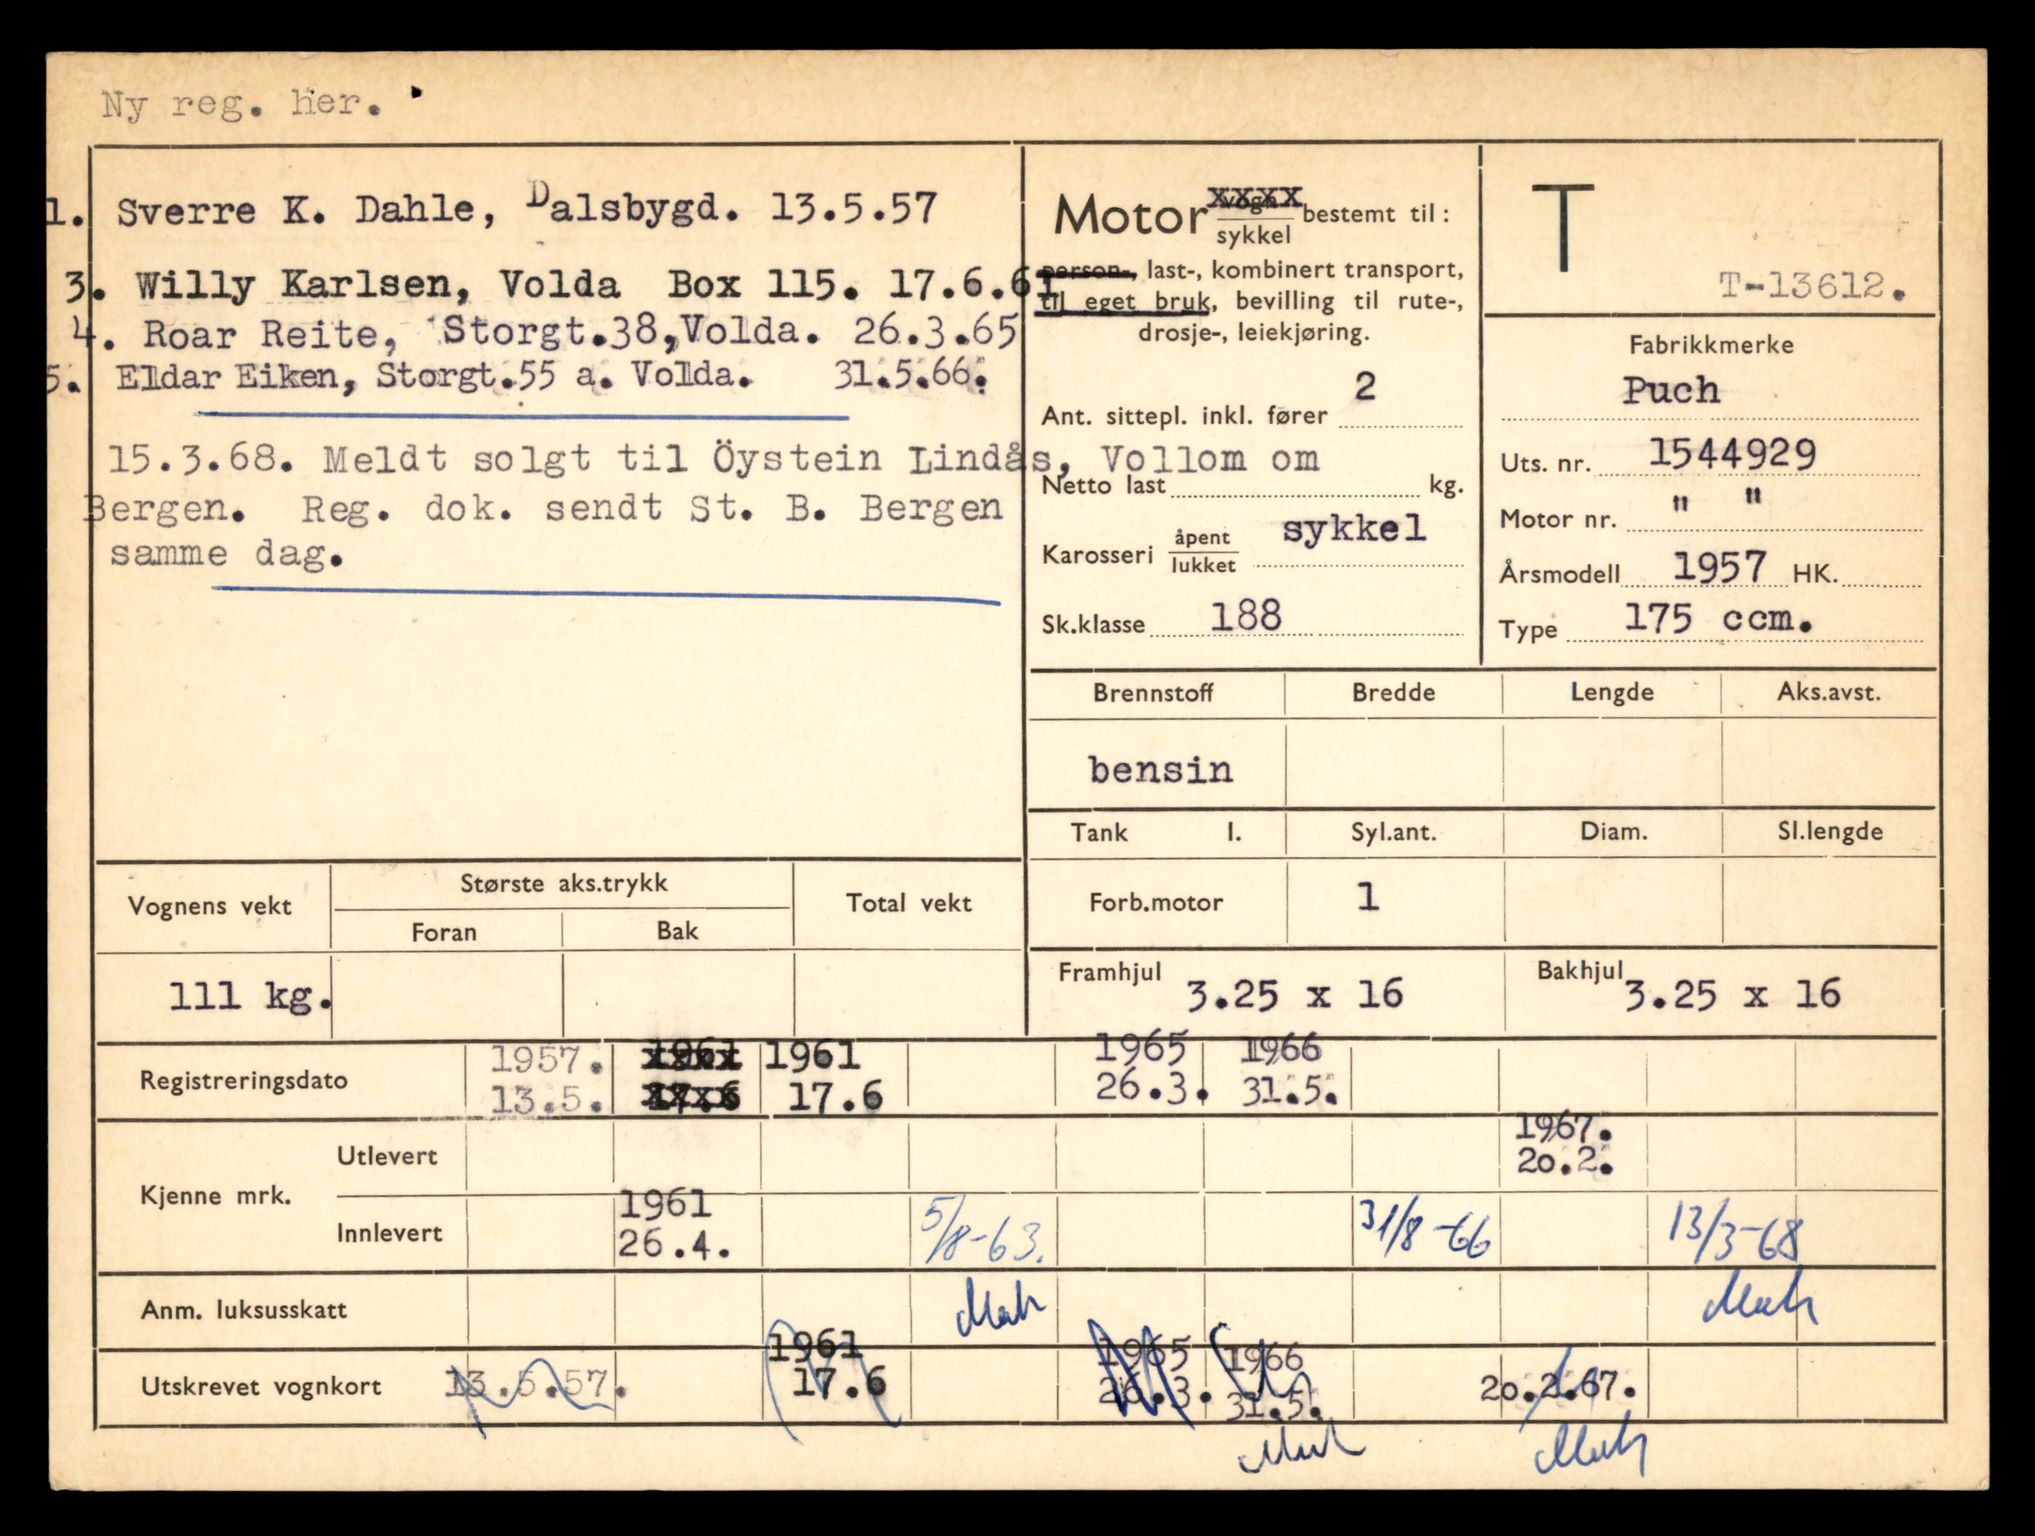 Ny reg. her.
1. Sverre K. Dahle, Dalsbygd. 13.5.57
3. Willy Karlsen, Volda Box 115. 17.6.61
4. Roar Reite, Storgt.38,Volda. 26.3.65
5. Eldar Eiken, Storgt.55 a. Volda. 31.5.66.
15.3.68. Meldt solgt til Öystein Lindås, Vollom om
Bergen. Reg. dok. sendt St. B. Bergen
samme dag.
Motor vogn bestemt til:
sykkel
person-, last-, kombinert transport,
til eget bruk, bevilling til rute-,
drosje-, leiekjøring.
Ant. sittepl. inkl. fører 2
Netto last kg.
Karosseri åpent sykkel
lukket
Sk.klasse 188
T
T-13612.
Fabrikkmerke
Puch
Uts. nr. 1544929
Motor nr. " "
Årsmodell 1957 HK.
Type 175 ccm.
Brennstoff Bredde Lengde Aks.avst.
bensin
Tank l. Syl.ant. Diam. Sl.lengde
Forb.motor 1
Framhjul 3.25 x 16 Bakhjul 3.25 x 16
Vognens vekt Største aks.trykk Total vekt
Foran Bak
111 kg.
Registreringsdato 1957. 1961 1961 1965 1966
13.5. 17.6 17.6 26.3. 31.5.
Kjenne mrk.
Utlevert 1967.
20.2.
Innlevert 1961 5/8-63. 31/8-66 13/3-68
26.4.
Anm. luksusskatt
Utskrevet vognkort 13.5.57. 1961 1965 1966 20.2.67.
17.6 26.3. 31.5.